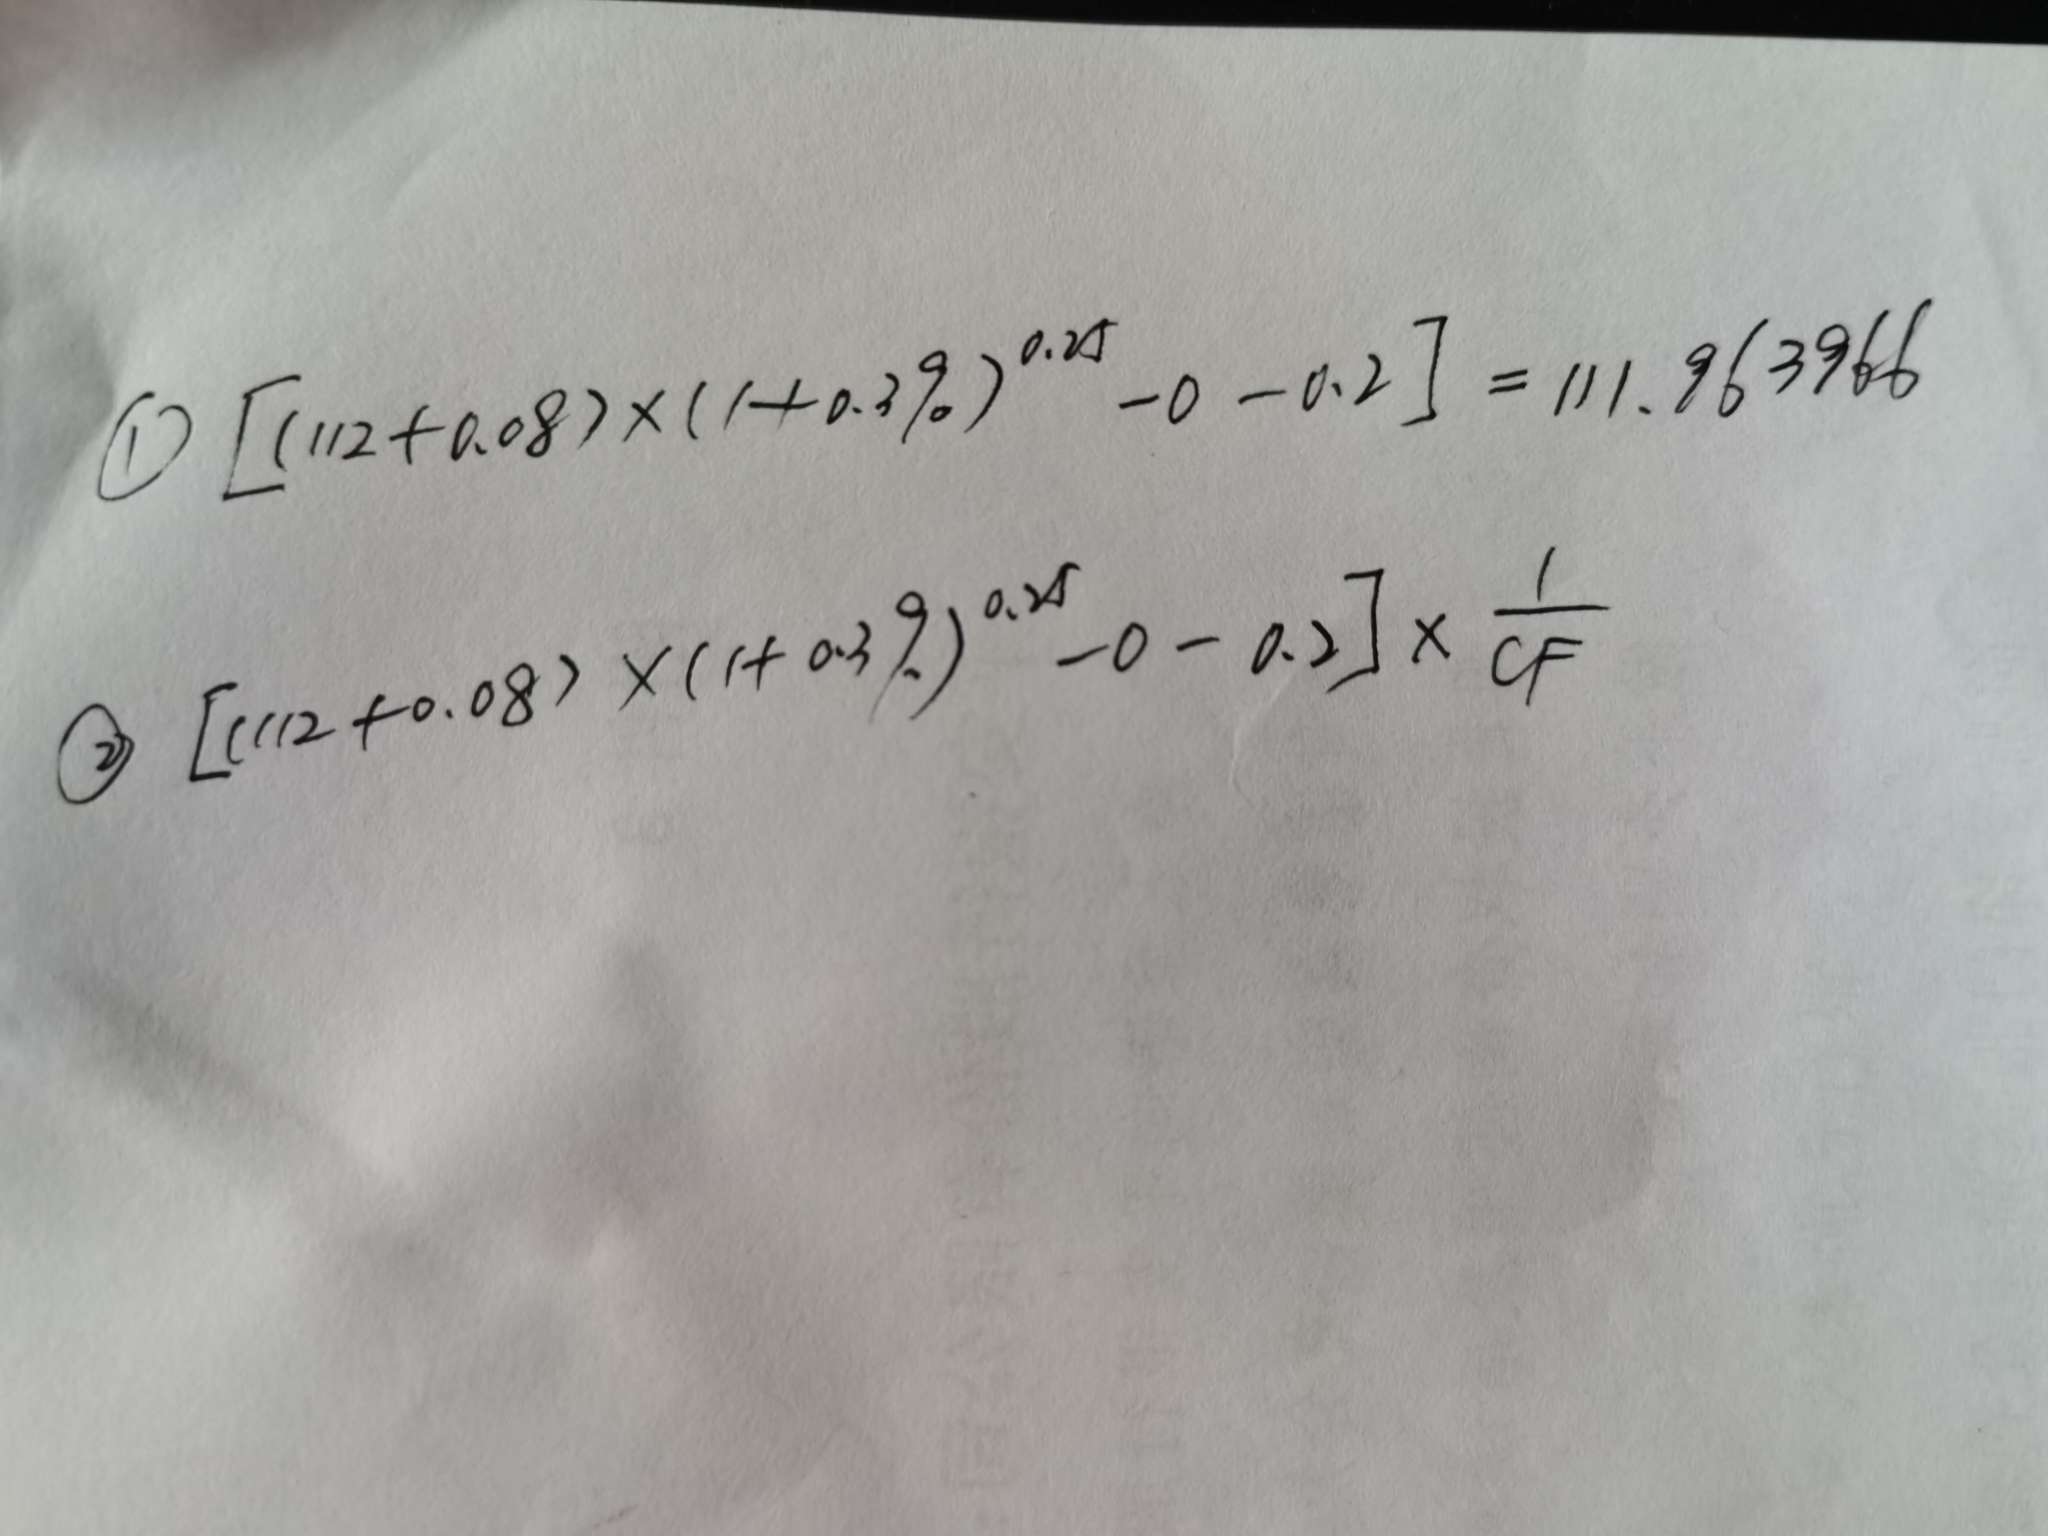 ① [(112+0.08)×(1+0.3%)^0.25 -0-0.2] = 111.963966
② [(112+0.08)×(1+0.3%)^0.25 -0-0.2]×1/CF